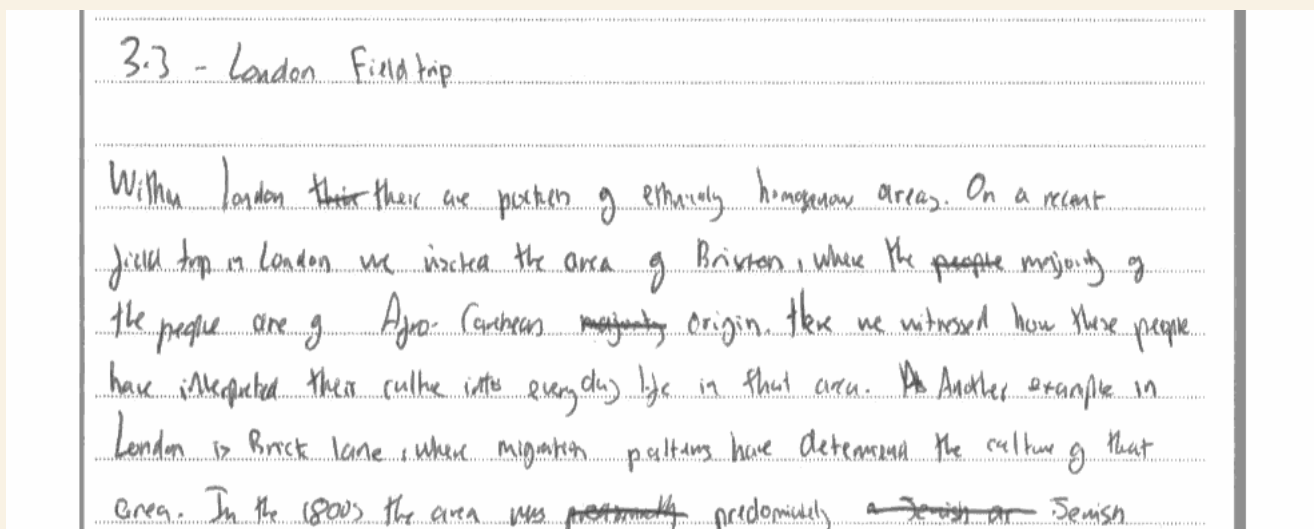 3.3 - London Field trip
Within London there are pockets of ethnically homogenous areas. On a recent
field trip in London we visited the area of Brixton, where the people majority of
the people are of Afro-Caribbean majority origin. Here we witnessed how these people
have interpreted their culture into everyday life in that area. Another example in
London is Brick lane, where migration patterns have determined the culture of that
area. In the 1800s the area was predominately a Jewish ar Jewish